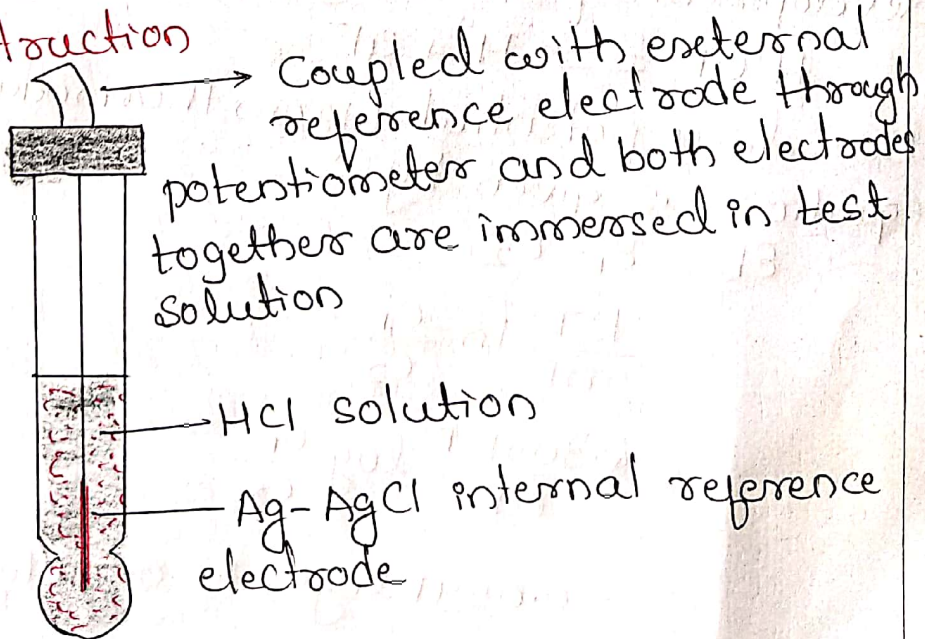 truction
Coupled with external
reference electrode through
potentiometer and both electrodes
together are immersed in test
solution
HCl solution
Ag-AgCl internal reference
electrode